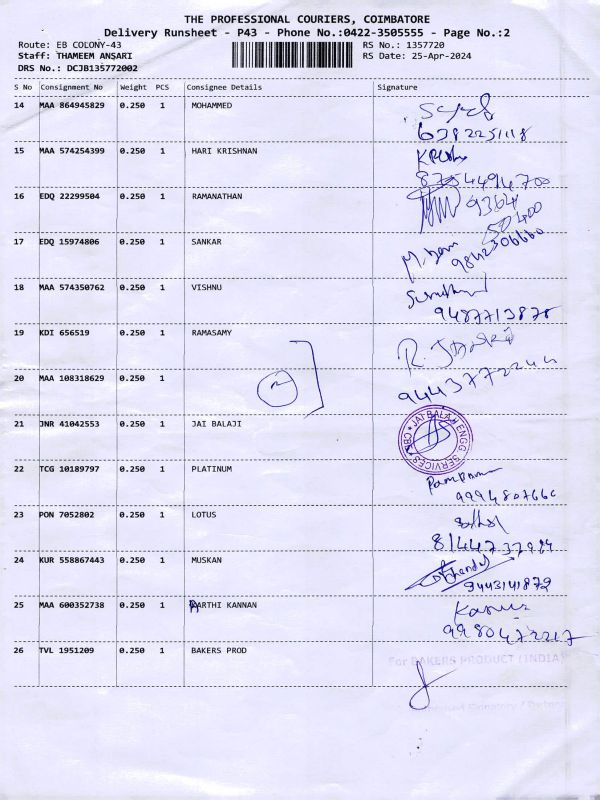 THE PROFESSIONAL COURIERS, COIMBATORE
Delivery Runsheet - P43 - Phone No.:0422-3505555 - Page No.:2
Route: EB COLONY-43 RS No.: 1357720
Staff: THAMEEM ANSARI RS Date: 25-Apr-2024
DRS No.: DCJB135772002
S No Consignment No Weight PCS Consignee Details Signature
14 MAA 864945829 0.250 1 MOHAMMED
6382251118
15 MAA 574254399 0.250 1 HARI KRISHNAN
8754494700
16 EDQ 22299504 0.250 1 RAMANATHAN
9364
50400
17 EDQ 15974806 0.250 1 SANKAR
9842306660
18 MAA 574350762 0.250 1 VISHNU
9487713878
19 KDI 656519 0.250 1 RAMASAMY
20 MAA 108318629 0.250 1
9443772244
21 JNR 41042553 0.250 1 JAI BALAJI
JAI BALAJI ENGG SERVICES CBE
22 TCG 10189797 0.250 1 PLATINUM
9994807660
23 PON 7052802 0.250 1 LOTUS
24 KUR 558867443 0.250 1 MUSKAN
9443141879
25 MAA 600352738 0.250 1 AARTHI KANNAN
9980472217
26 TVL 1951209 0.250 1 BAKERS PROD
For BAKERS PRODUCT (INDIA)